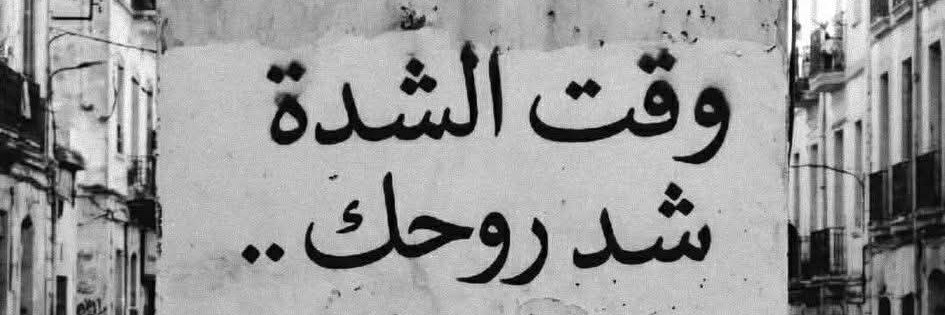 وقت الشدة
شد روحك ..